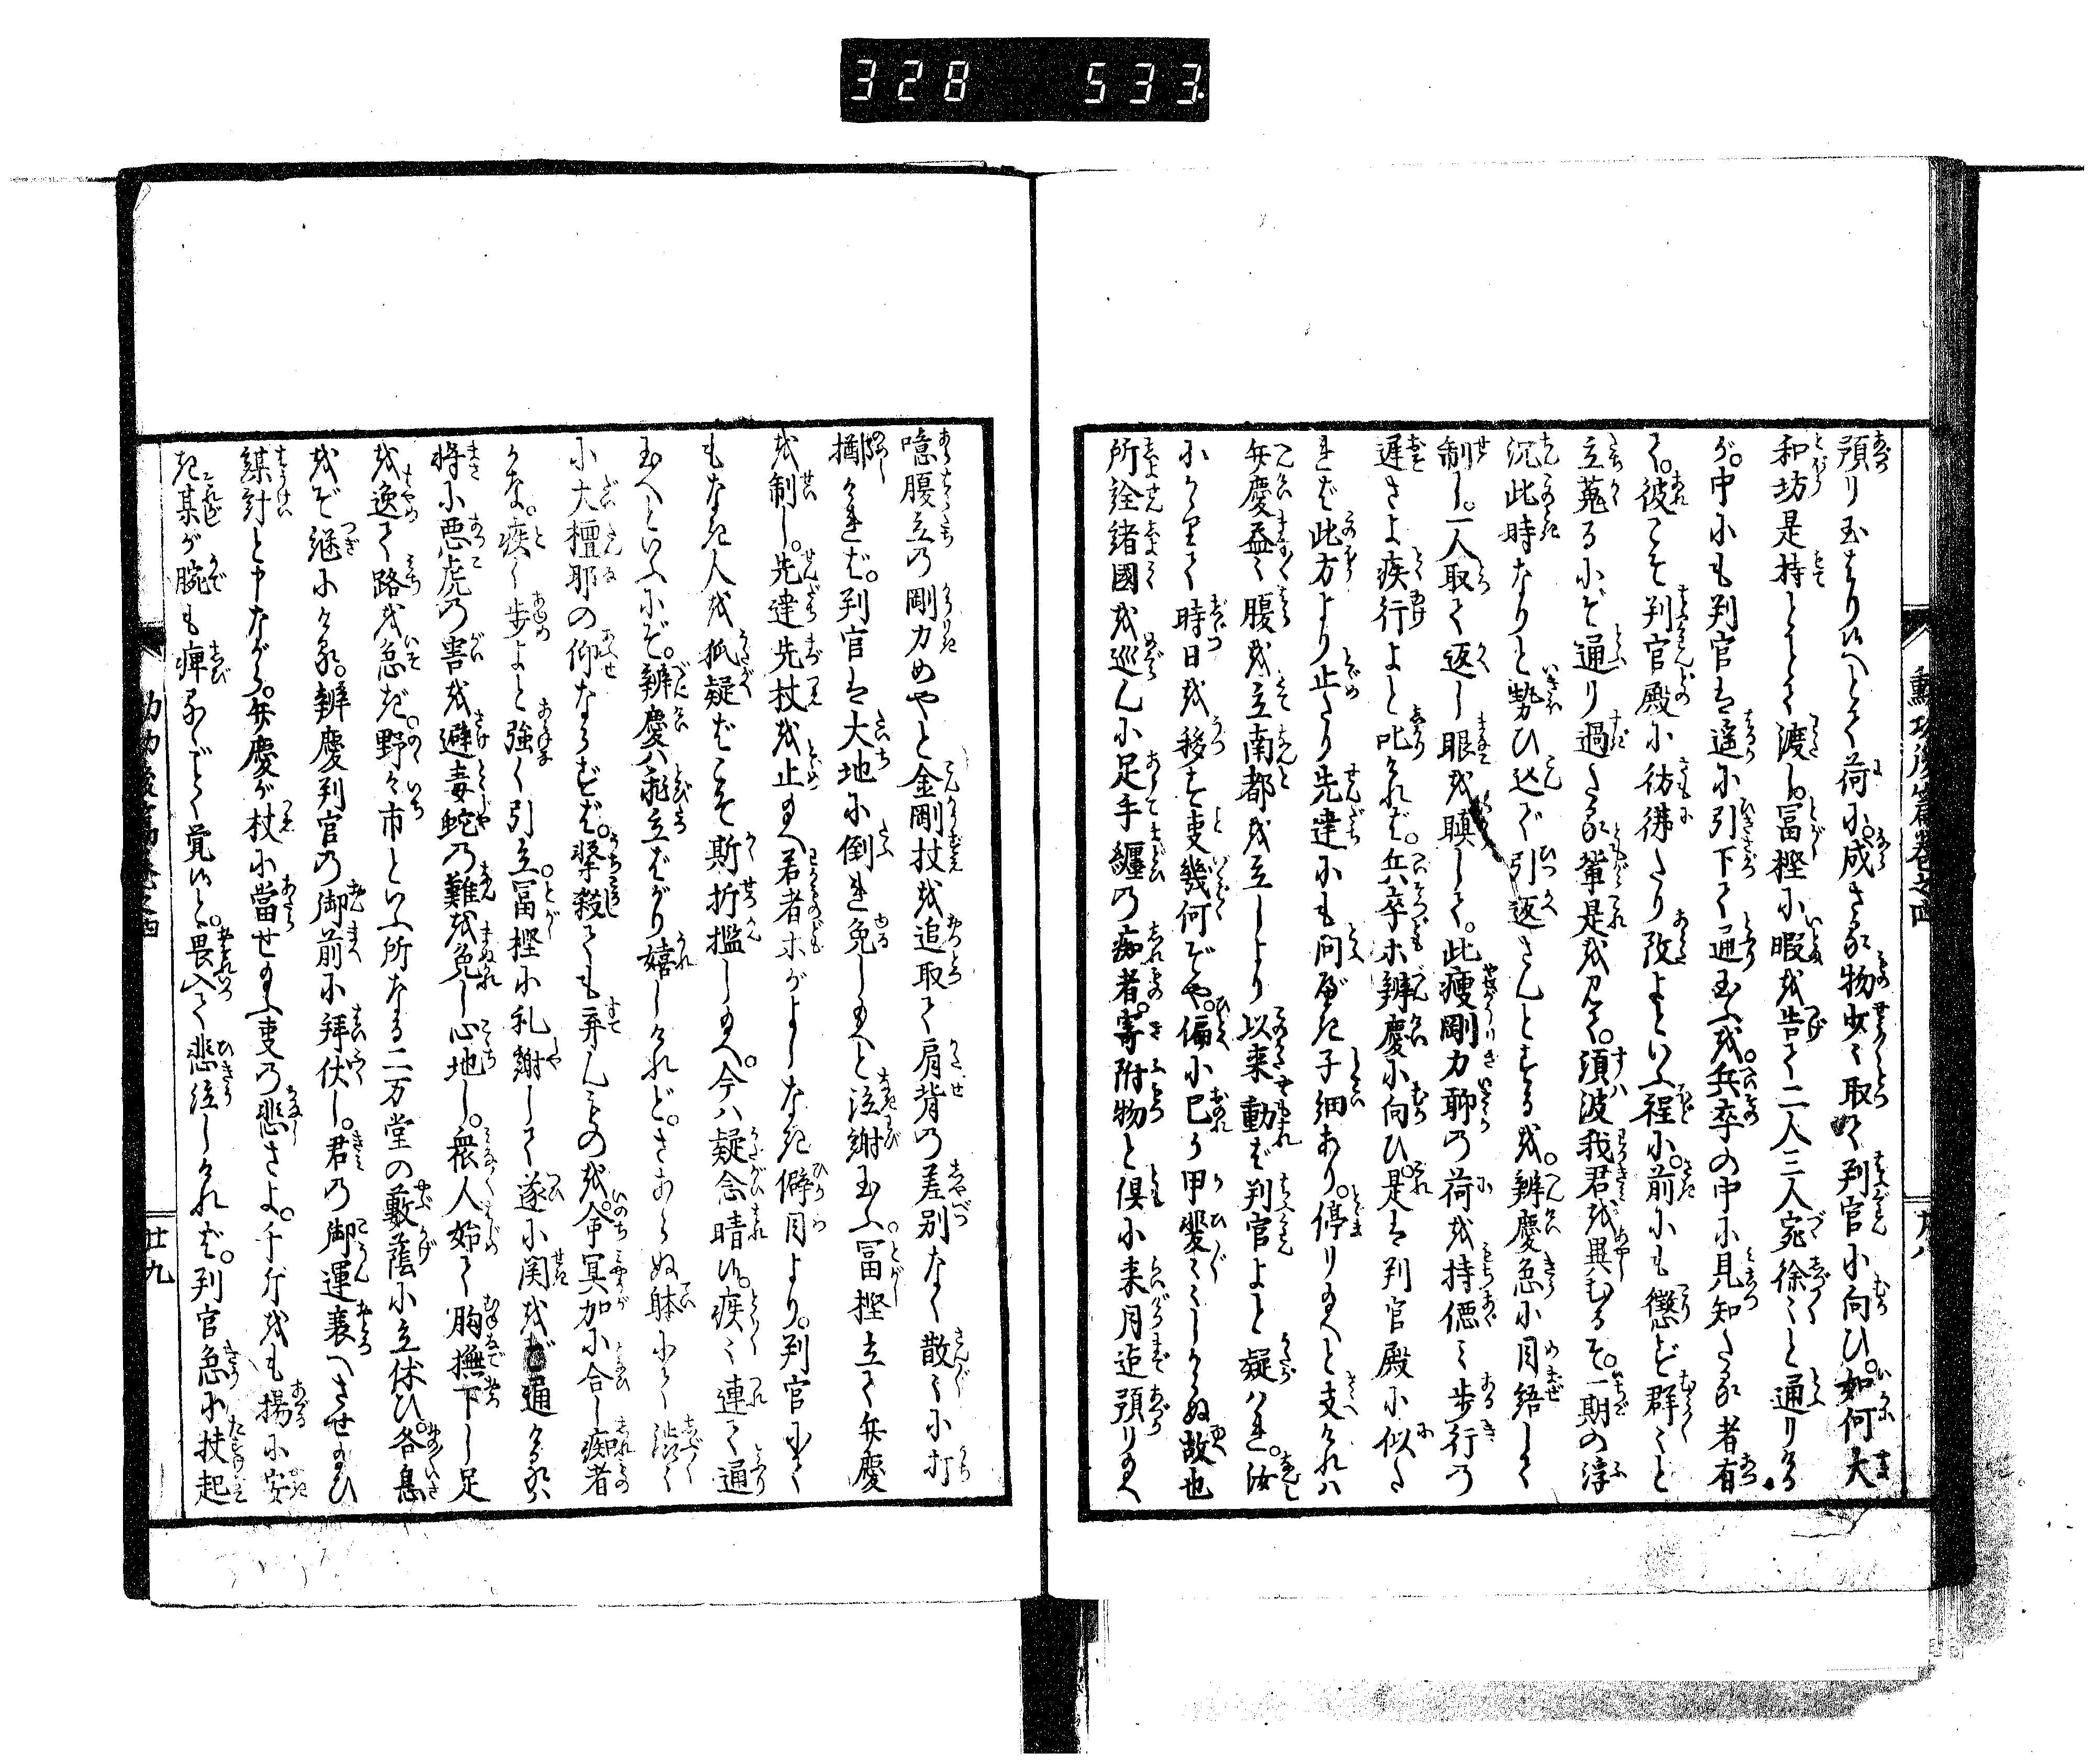 328 533
預り玉はり候へとて荷ふ成さる物少々取て判官に向ひ。如何大
和坊是持とて渡し冨樫に暇を告て二人三人宛徐々と通りける
が。中にも判官は遥に引下て通玉ふを。兵卒の中に見知たる者有
て。彼こそ判官殿に彷彿たり改よといふ程に。前にも懲ど群々と
立蒐るにぞ通り過たる輩是を見て。須波我君を異むるぞ。一期の浮
沉此時なりと勢ひ込で引返さんとするを。辨慶急に目結して
制し。一人取て返し眼を瞋して。此痩剛力聊の荷を持倦み歩行の
遅さよ疾行よと叱れば。兵卒ホ辨慶に向ひ是は判官殿に似た
ればこ此方より止たり先達にも問べき子細あり。停り玉へと支ければ
弁慶益々腹を立南都を立しより以来動ば判官よと疑はれ。汝
にかりて時日を移す事幾何ぞや。偏に己が甲斐々々しからぬ故也
所詮諸國を巡んに足手纏の痴者。寄附物と倶に来月迄預り玉へ
噫腹立の剛力めやと金剛杖を追取て肩背の差別なく散々に打
擲ければ。判官は大地に倒れ免し玉へと泣謝玉ふ。冨樫立て弁慶
を制し。先達先杖を止玉へ若者ホがよしなき僻目より。判官にて
もなき人を狐疑ばこそ斯折檻し玉へ。今ハ疑念晴候。疾々連て通
玉へといふにぞ。辨慶ハ飛立ばがり嬉しけれど。さあらぬ躰にて渋々
に大檀耶の仰ならずば。撃殺ても弃んものを。命冥加に合し痴者
かな。疾く歩よと強く引立。冨樫に礼謝して遂に関をば通ける。
将に悪虎の害を避毒蛇の難を免し心地し。衆人始て胸撫下し足
を逸て路を急ぎ。野々市といふ所なる二万堂の藪蔭に立休ひ。各息
をぞ継にける。辨慶判官の御前に拜伏し。君の御運衰へさせ玉ひ
謀計と申ながら。弁慶が杖に當せ玉ふ事の悲さよ。千斤をも揚に安
き某が腕も痺るごとく覚候と。畏入て悲泣しければ。判官急に扶起
勲功後篇巻之四
廿八
廿九